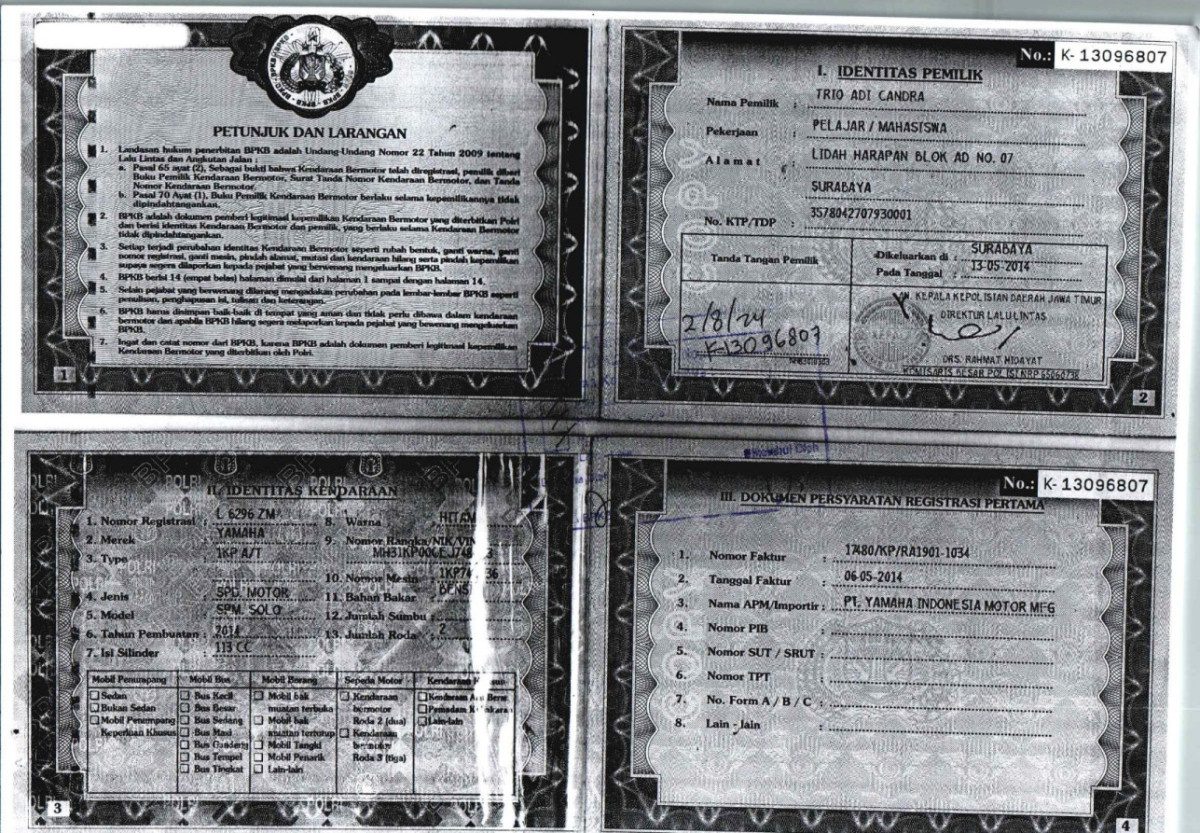 PETUNJUK DAN LARANGAN
1. Landasan hukum penerbitan BPKB adalah Undang-Undang Nomor 22 Tahun 2009 tentang
Lalu Lintas dan Angkutan Jalan :
a. Pasal 65 ayat (2), Sebagai bukti bahwa Kendaraan Bermotor telah diregistrasi, pemilik diberi
Buku Pemilik Kendaraan Bermotor, Surat Tanda Nomor Kendaraan Bermotor, dan Tanda
Nomor Kendaraan Bermotor.
b. Pasal 70 Ayat (1), Buku Pemilik Kendaraan Bermotor berlaku selama kepemilikannya tidak
dipindahtangankan.
2. BPKB adalah dokumen pemberi legitimasi kepemilikan Kendaraan Bermotor yang diterbitkan Polri
dan berisi identitas Kendaraan Bermotor dan pemilik, yang berlaku selama Kendaraan Bermotor
tidak dipindahtangankan.
3. Setiap terjadi perubahan identitas Kendaraan Bermotor seperti rubah bentuk, ganti warna, ganti
nomor registrasi, ganti mesin, pindah alamat, mutasi dan kendaraan hilang serta pindah kepemilikan
supaya segera dilaporkan kepada pejabat yang berwenang mengeluarkan BPKB.
4. BPKB berisi 14 (empat belas) halaman dimulai dari halaman 1 sampai dengan halaman 14.
5. Selain pejabat yang berwenang dilarang mengadakan perubahan pada lembar-lembar BPKB seperti
penulisan, penghapusan isi, tulisan dan keterangan.
6. BPKB harus disimpan baik-baik di tempat yang aman dan tidak perlu dibawa dalam kendaraan
bermotor dan apabila BPKB hilang segera melaporkan kepada pejabat yang bewenang mengeluarkan
BPKB.
7. Ingat dan catat nomor dari BPKB, karena BPKB adalah dokumen pemberi legitimasi kepemilikan
Kendaraan Bermotor yang diterbitkan oleh Polri.
1
No.: K-13096807
I. IDENTITAS PEMILIK
Nama Pemilik : TRIO ADI CANDRA
Pekerjaan : PELAJAR / MAHASISWA
Alamat : LIDAH HARAPAN BLOK AD NO. 07
SURABAYA
No. KTP/TDP : 3578042707930001
Tanda Tangan Pemilik
Dikeluarkan di : SURABAYA
Pada Tanggal : 13-05-2014
AN. KEPALA KEPOLISIAN DAERAH JAWA TIMUR
DIREKTUR LALU LINTAS
2/8/24
K-13096807
DRS. RAHMAT HIDAYAT
KOMISARIS BESAR POL ISI NRP
2
II. IDENTITAS KENDARAAN
1. Nomor Registrasi : L 6296 ZM
2. Merek : YAMAHA
3. Type : 1KP A/T
4. Jenis : SPD. MOTOR
5. Model : SPM. SOLO
6. Tahun Pembuatan : 2014
7. Isi Silinder : 113 CC
8. Warna : HITAM
9. Nomor Rangka/NIK/VIN
10. Nomor Mesin :
11. Bahan Bakar :
12. Jumlah Sumbu :
13. Jumlah Roda : 2
Mobil Penumpang Mobil Bus Mobil Barang Sepeda Motor Kendaraan
Sedan Bus Kecil Mobil bak Kendaraan Kendaraan Alat Berat
Bukan Sedan Bus Besar muatan terbuka bermotor Pemadam
Mobil Penumpang Bus Sedang Mobil bak Roda 2 (dua) Lain-lain
Keperluan Khusus Bus Maxi muatan tertutup Kendaraan
Bus Gandeng Mobil Tangki bermotor
Bus Tempel Mobil Penarik Roda 3 (tiga)
Bus Tingkat Lain-lain
3
No.: K-13096807
III. DOKUMEN PERSYARATAN REGISTRASI PERTAMA
1. Nomor Faktur : 17480/KP/RA1901-1034
2. Tanggal Faktur : 06-05-2014
3. Nama APM/Importir : PT. YAMAHA INDONESIA MOTOR MFG
4. Nomor PIB :
5. Nomor SUT / SRUT :
6. Nomor TPT :
7. No. Form A / B / C :
8. Lain - Jain :
4